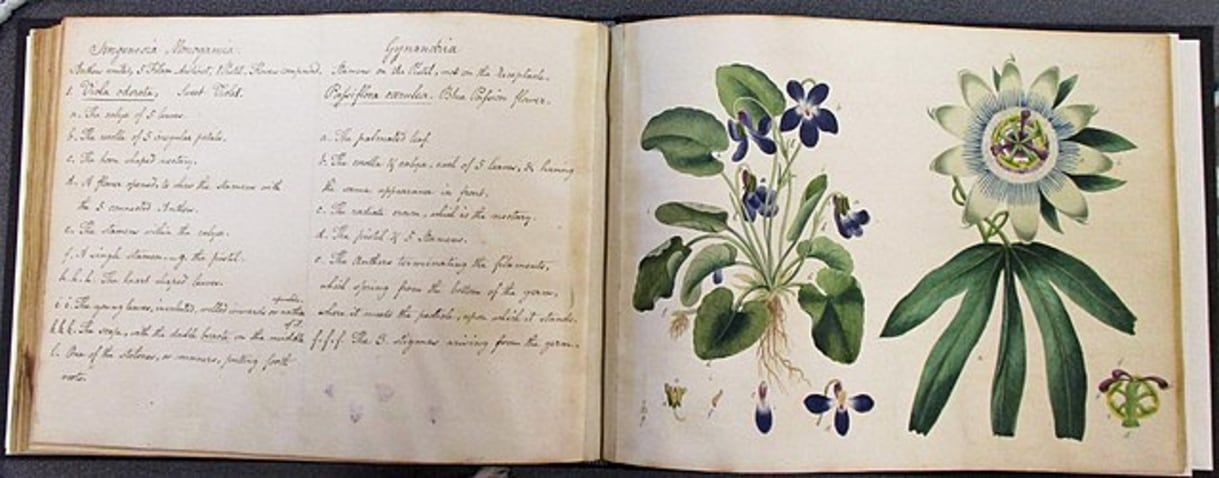 Syngenesia Monogamia.
Anthers united, 5 Filam. distinct, 1 Pistil, Flowers compound.
1. Viola odorata, Sweet Violet.
a. The calyx of 5 leaves.
b. The corolla of 5 irregular petals.
c. The horn shaped nectary.
d. A flower opened, to shew the stamens with
the 5 connected Anthers.
e. The stamens within the calyx.
f. A single stamen. g. the pistil.
h.h.h. The heart shaped leaves.
i i. The young leaves, involuted, rolled inwards or rather
upwards.
k k k. The scape, with the double bracte, on the middle
of it.
l. One of the stolones, or runners, putting forth
roots.
Gynandria
Stamens on the Pistil, not on the Receptacle.
Passiflora cærulea. Blue Passion flower.
a. The palmated leaf.
b. The corolla & calyx, each of 5 leaves, & having
the same appearance in front.
c. The radiate crown, which is the nectary.
d. The pistil & 5 Stamens.
e. The Anthers terminating the filaments,
which spring from the bottom of the germ,
where it meets the pedicle, upon which it stands.
f.f.f. The 3 stigmas arising from the germ.